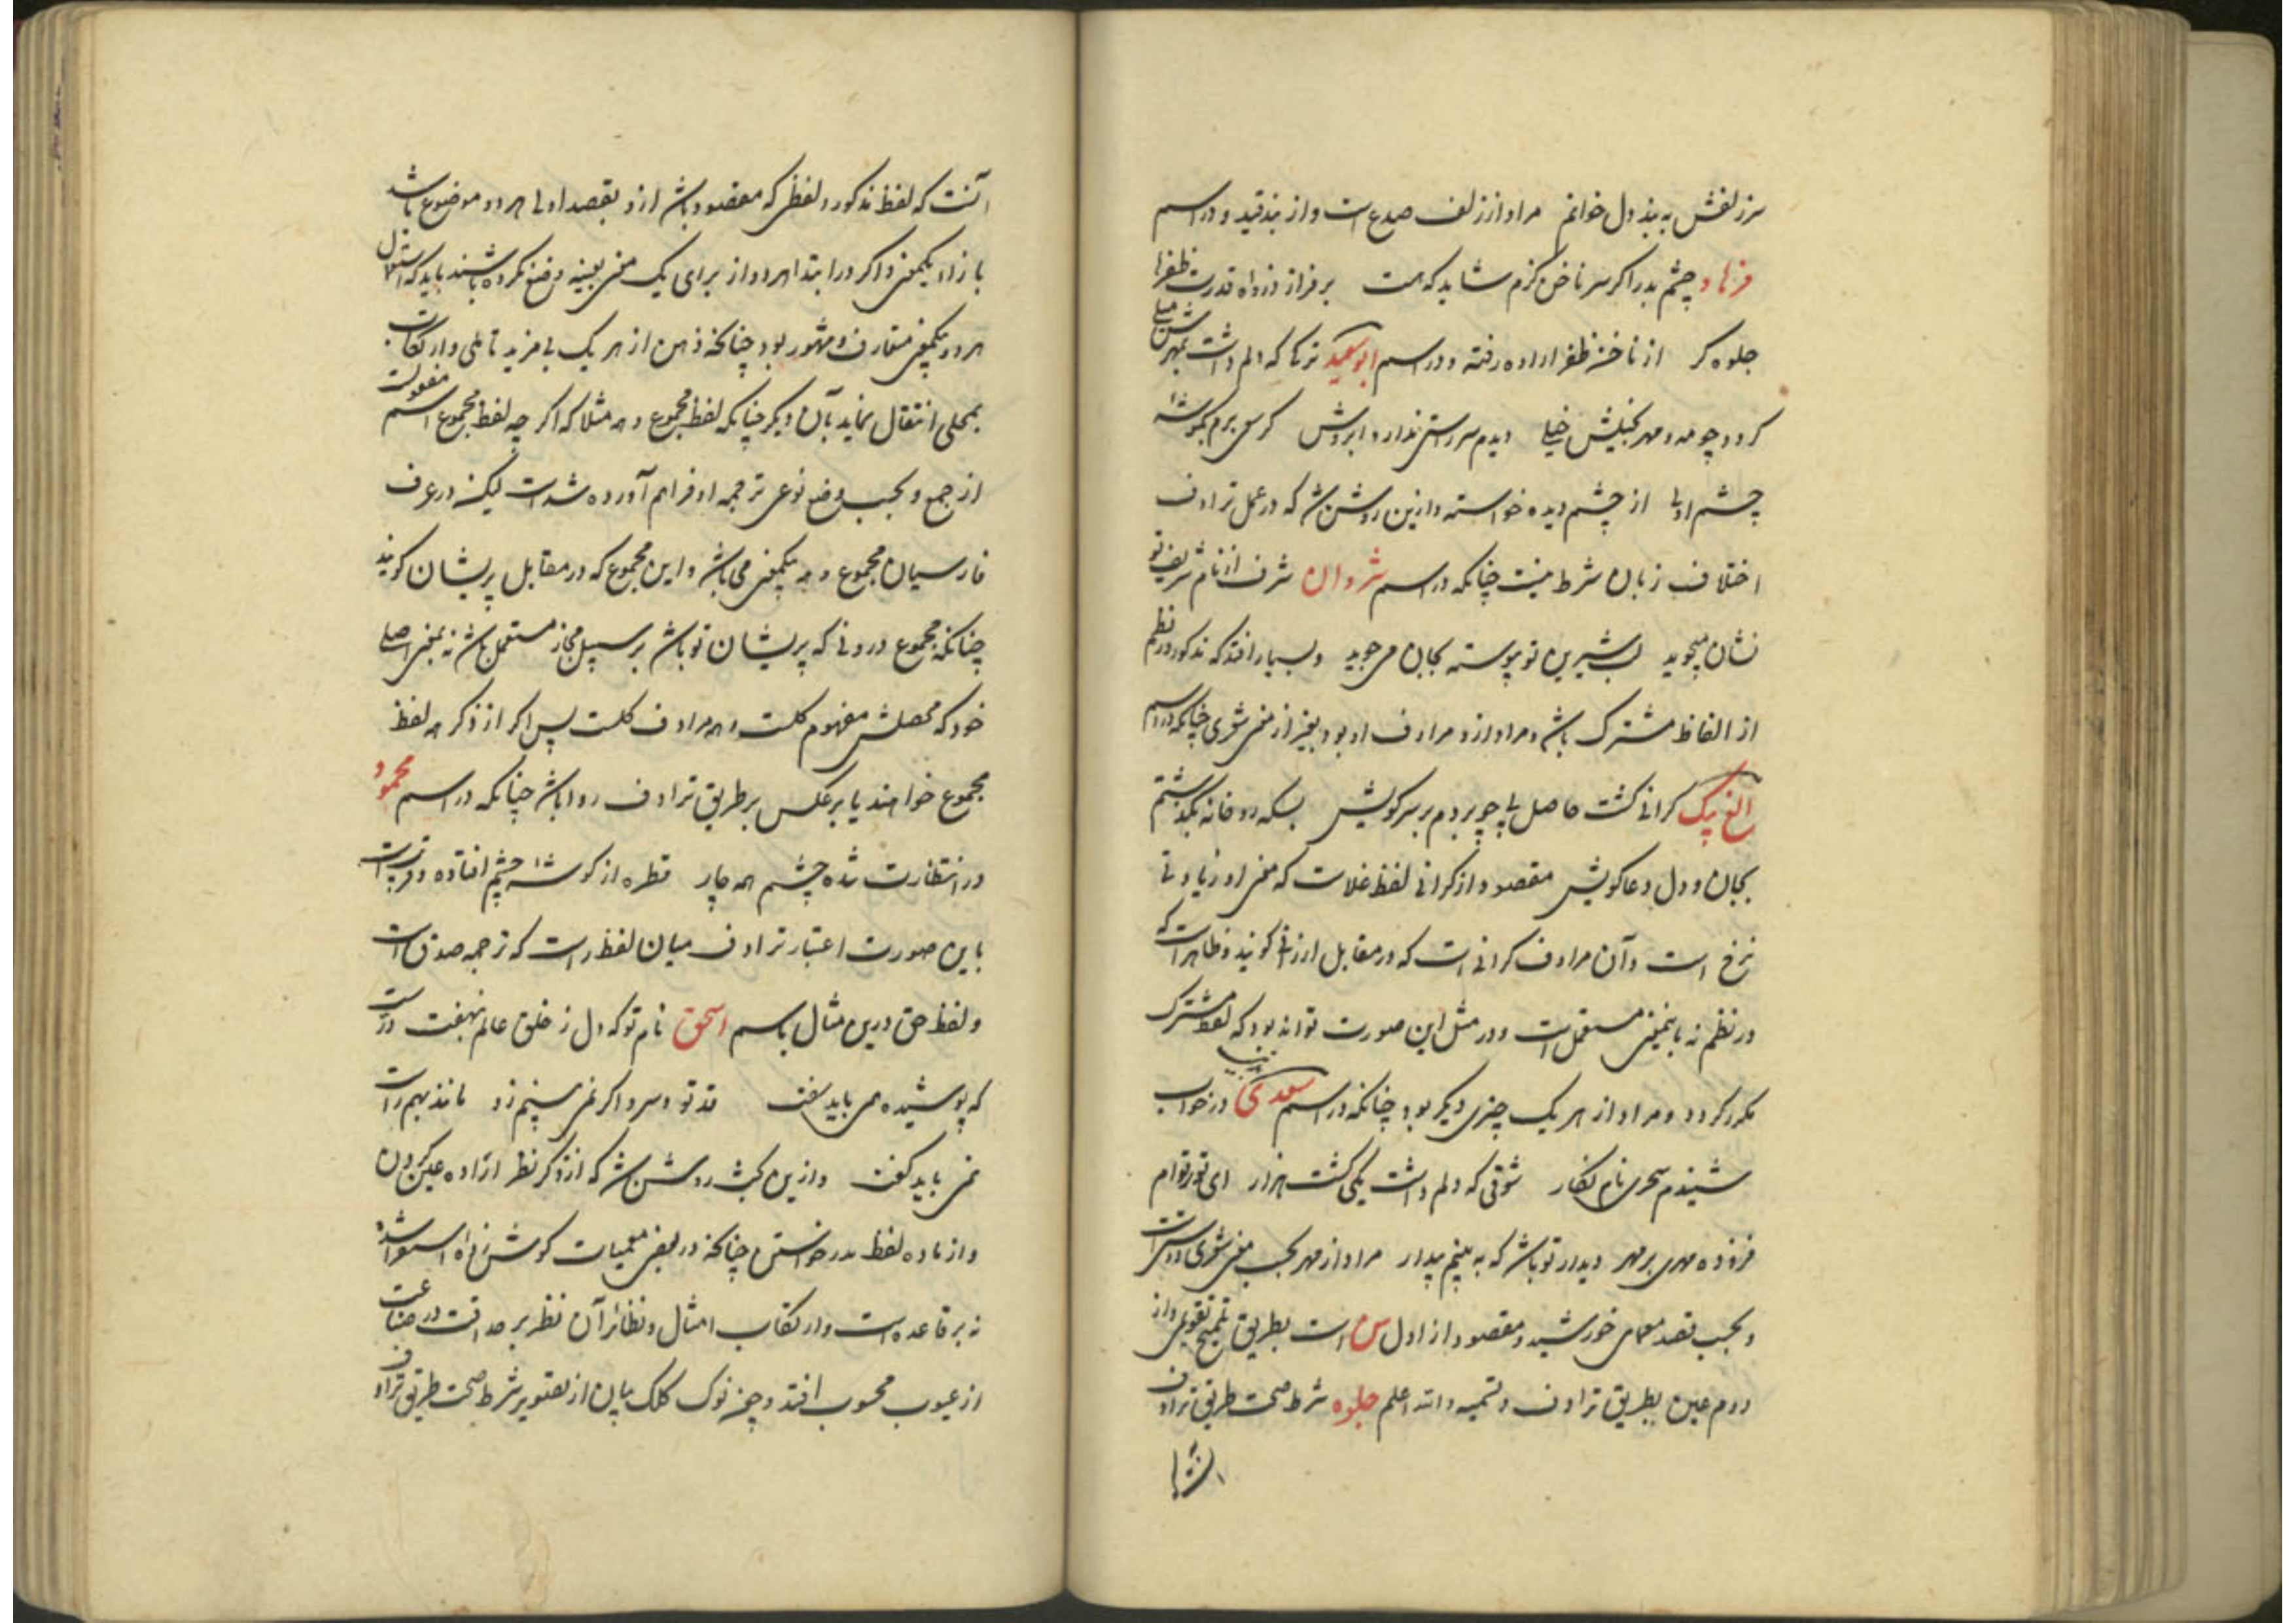 سر زلفش به بند دل خوانم مراد از زلف صدغ است و از بند قید و در اسم
فرهاد چشم بد را اکر سر ناخن کزم شاید که هست بر فراز
جلوه کر از ناخن ظفر اراده رفته و در اسم ابو سعید ترکا که دلم داشت بمهرش میلی
کردد چو مه و مهر خیلی دیدم سر راستی ندارد ابروش کر سعی برم بکوشه
چشم اولی از چشم دیده خواسته و ازین روشن شد که در عمل ترادف
اختلاف زبان شرط نیست چنانکه در اسم شروان شرف از نام شریف تو
نشان میجوید لب شیرین تو پیوسته بجان می جوید و بسیار افتد که مذکور در نظم
از الفاظ مشترک باشد و مراد ازو مرادف او بود بغیر از معنی شعری چنانکه در اسم
الغ بیک کرانی کشت حاصل پی چو بردم بر سر کویش بسکه رو خانه
بجان و دل دعا کویش مقصود از کرانی لفظ غلاست که معنی او زیادتی
نرخ است و آن مرادف کرانی است که در مقابل ارزانی کویند و ظاهر است که
در نظم نه باین معنی مستعمل است و در مثل این صورت تواند بود که لفظ مشترک
مکرر کردد و مراد از هر یک چیزی دیکر بود چنانکه در اسم سعدی در خواب
شنیدم سحری نام نکار شوقی که دلم داشت یکی کشت هزار ای
فزوده مهری بر مهر دیدار تو باشد که به بینم بیدار مراد از مهر بحسب معنی شعری دوستی است
و بحسب قصد معمای خورشید و مقصود از اول س است بطریق تلمیح تقویمی و از
دوم عین بطریق ترادف و تسمیه والله اعلم جلوه شرط صحت طریق ترادف
آنست که لفظ مذکور و لفظی که مقصود باشد ازو بقصد اولی هر دو موضوع باشد
بازاء یکمعنی و اکر در ابتدا هر دو از برای یک معنی بعینه وضع نکرده باشند باید که استعمال
هر دو یکمعنی متعارف و مشهور بود چنانکه ذهن از هر یک بی مزید تاملی و ارتکاب
تمحلی انتقال نماید بآن دیکر چنانکه لفظ مجموع و همه مثلا که اکر چه لفظ مجموع اسم مفعولست
از جمع و بحسب وضع نوعی ترجمه او فراهم آورده شده است لیکن در عرف
فارسیان مجموع و همه یکمعنی می باشد و این مجموع که در مقابل پریشان کویند
چنانکه مجموع درونی که پریشان تو باشد بر سبیل مجاز مستعمل باشد نه بمعنی اصلی
خود که محصلش مفهوم کلست و همه مرادف کلست پس اکر از ذکر همه لفظ
مجموع خواهند یا برعکس بر طریق ترادف روا باشد چنانکه در اسم محمود
در انتظارت شده چشم همه چار قطره از کوشه چشم افتاده و
باین صورت اعتبار ترادف میان لفظ راست که ترجمه صدق است
و لفظ حق درین مثال باسم اسحق نام تو که دل ز خلق عالم بنهفت
که پوشیده می باید سفت قد تو و سرو اکر نمی بینم زد مانند بهم راست
نمی باید کفت و ازین بحث روشن شد که از ذکر نظر اراده عین کردن
و از ماده لفظ مدد خواستن چنانکه در بعضی معمیات کوش زد استماع شده
نه بر قاعده است و ارتکاب امثال و نظائر آن نظر بر حداقت در صناعت
از عیوب محسوب افتد و چون نوک کلک بیان از تصویر شرط صحت طریق ترادف